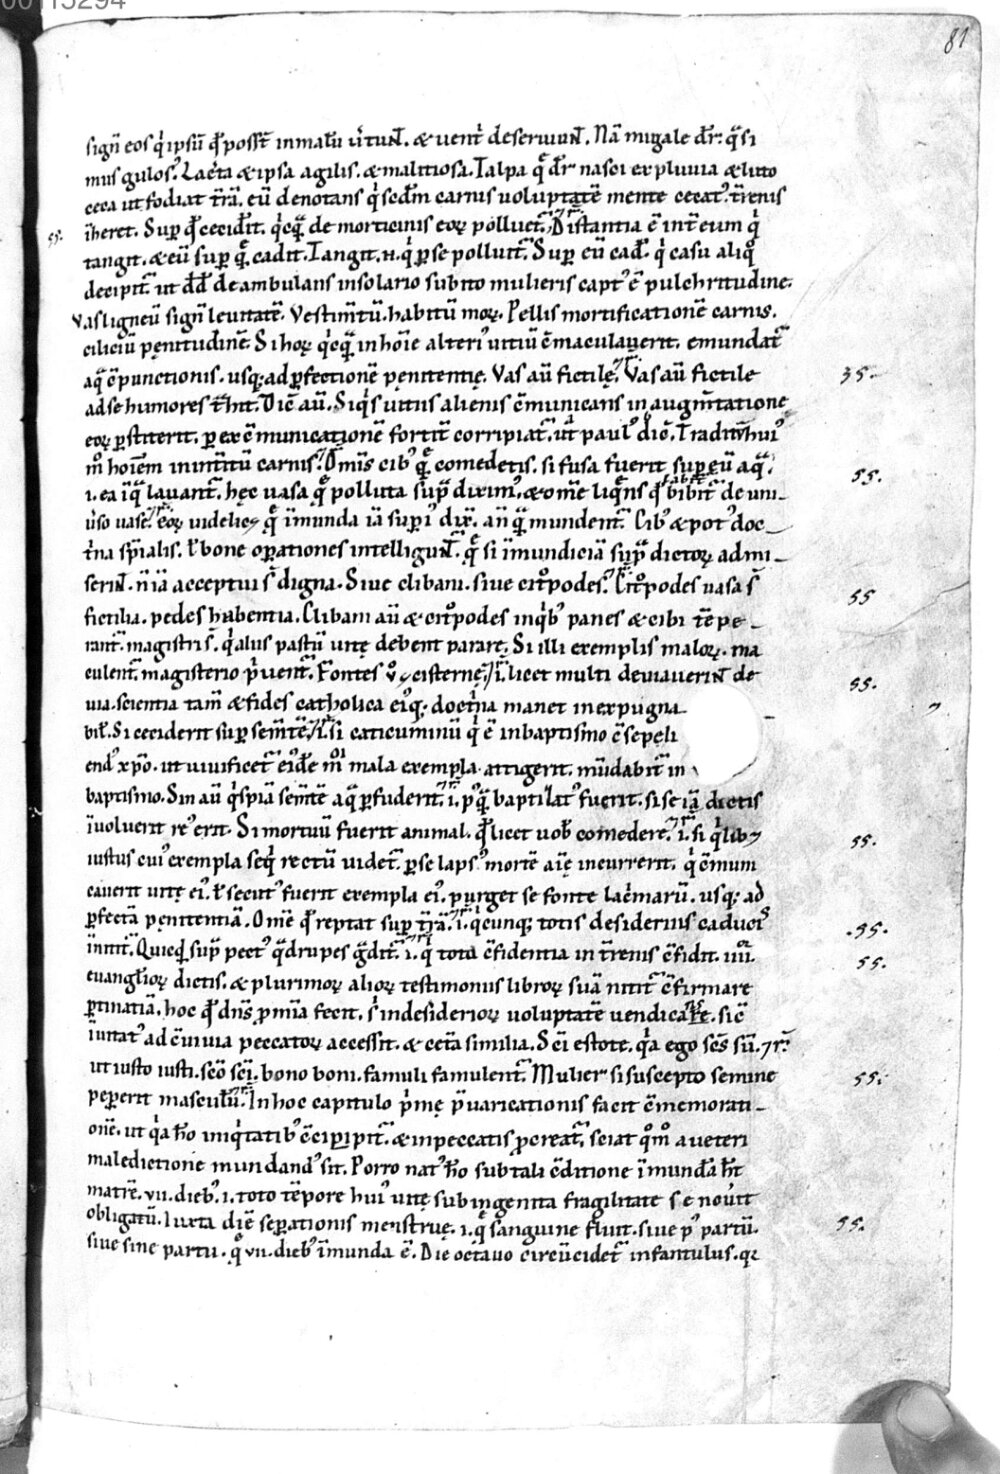 00115294
81
signͫ eos qͥ ipsū qͩ posſt̄ in malū ūtunt̄. & uent̄ deseruiunt̄. Nā migale dr̄. qͣsi
mus gulosꝰ. Lac̄ta & ipsa agilis. & malitiosa. Talpa q̄ dr̄ nasci ex pluuia & luto
ceca ut fodiat t̄rā. eū denotans qͥ scdm̄ carnis uoluptatē mente cecatꝰ. t̄renis
īheret. Sup̄ qͩ cecidͭit. qͥcqͣ de morticinis eoꝝ polluet̄. Distantia ē int̄ eum qͥ
tangit. & eū sup̄ q̄ cadit. Tangit. n̄. qͥ ꝑ se polluit̄. Sup̄ eū cadͭ. qͥ casu aliqͦ
decipit̄. ut dd̄ deambulans in solario subito mulieris captꝰ ē pulchritudine.
Vas ligneū signͫ leuitatē. Vestim̄tū. habitū moꝝ. Pellis mortificationē carnis.
ciliciū pęnitudinē. Si hoꝝ qͥcqͣ in hoīe alteriꝰ uitiū c̄maculauerit. emundat̄
aqͣ c̄punctionis. usq; ad ꝑfectionē pęnitentię. Vas aū fictilę. Vas aū fictile
ad se humores t̄hit. Dic̄ aū. Si qͥs uitiis alienis c̄municans in augm̄tatione
eoꝝ ꝑstiterit. ꝑ exc̄municationē fortit̄ corripiat̄. ut̄ paulꝰ dic̄. Tradit̄ huiꝰ
mͦ hoiem in int̄itū carnis. Om̄is cibꝰ q̄ comedetis. si fusa fuerit sup̄ eū aqͣ.
.i. ea īqͣ lauant̄. hęc uasa q̄ polluta sup̄ diximꝰ. & om̄e liq̄ns qͩ bibit̄ de uni-
ūso uase. eoꝝ uidelicꝫ q̄ īmunda iā supiꝰ dix̄. anqͣ mundent̄. Cibꝰ & potꝰ doc-
t̄na sp̄ialis. ł bone oꝑationes intelligunt̄. q̄ si īmundiciā sup̄dictoꝝ admi-
serint̄. n̄ iā acceptui s̄ digna. Siue clibani. siue cit̄podes. Cit̄podes uasa s̄
fictilia. pedes habentia. Clibani aū & cit̄podes in qͥbꝰ panes & cibi tēpe-
rant̄. magistri s̄. qͥ aliis pastū uitę debent parare. Si illi exemplis maloꝝ. ma
culent̄. magisterio pͥuent̄. Fontes ūꝫ cisternę. .i. licet multi deuiauerint̄ de
uia. scientia tam̄ & fides catholica eiꝰq;. doct̄na manet inexpugna-
bil̄. Si ceciderit sup̄ sem̄tē. .i. si caticuminū qͥ ē in baptismo c̄sepeli
endꝰ xp̄o. ut uiuificet̄ eidē mͦi mala exempla attigerit. mūdabit̄ in
baptismo. Sin aū qͥspiā sem̄tē aqͣ ꝑfuderit. .i. pꝰqͣ baptizatꝰ fuerit. si se iā dictis
īuoluerit reꝰ erit. Si mortuū fuerit animal. qͩ licet uob̄ comedere. .i. si qͥlibꝫ
iustus cuiꝰ exempla seqͥ rectū uidet̄. ꝑ se lapsꝰ mortē aīę incurrerit. qͥ c̄mum
cauerit uitę eiꝰ. ł secutꝰ fuerit exempla eiꝰ. purget se fonte lac̄marū. usq; ad
ꝑfectā pęnitentiā. Om̄e qͩ reptat sup̄ t̄rā. .i. qͥcunq; totis desideriis caducis
īnitit̄. Quicqͩ sup̄ pectꝰ qͣdrupes gͣdit̄. .i. qͥ tota c̄fidentia in t̄renis c̄fidit. iiii.
euangl̄ioꝝ dictis. & plurimoꝝ alioꝝ testimoniis libroꝝ suā nitit̄ c̄firmare
ꝑtinatiā. hoc qͩ dn̄s p̄ miā fecit. sͥ in desiderioꝝ uoluptatē uendicare. sic̄
īuitatꝰ ad c̄uiuia peccatoꝝ accessit. & cet̄a similia. Sc̄i estote. qͥa ego sc̄s sū. ⁊ r̄.
ut iusto iusti. sc̄o sc̄i. bono boni. famuli famulent̄. Mulier si suscepto semine
peꝑerit masculū. In hoc capitulo pͥmę p̄uaricationis facit c̄memorati-
onē. ut qͥa hō iniqͥtatibꝰ c̄cipit̄. & in peccatis procreat̄. sciat qͦmͦ a ueteri
maledictione mundandꝰ sit. Porro natꝰ hō sub tali c̄ditione īmundā ht̄
matrē. vii. diebꝰ. .i. toto tēpore huiꝰ uitę sub ingenita fragilitate se nouit
obligatū. Iuxta diē seꝑationis menstruę. .i. q̄ sanguine fluit. siue pꝰ partū.
siue sine partu. qͦ vii. diebꝰ īmunda ē. Die octauo circūcidet̄ infantulus. qꝛ